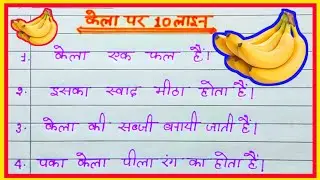 केला पर 10 लाइन
1. केला एक फल हैं।
2. इसका स्वाद मीठा होता हैं।
3. केला की सब्जी बनायी जाती हैं।
4. पका केला पीला रंग का होता हैं।